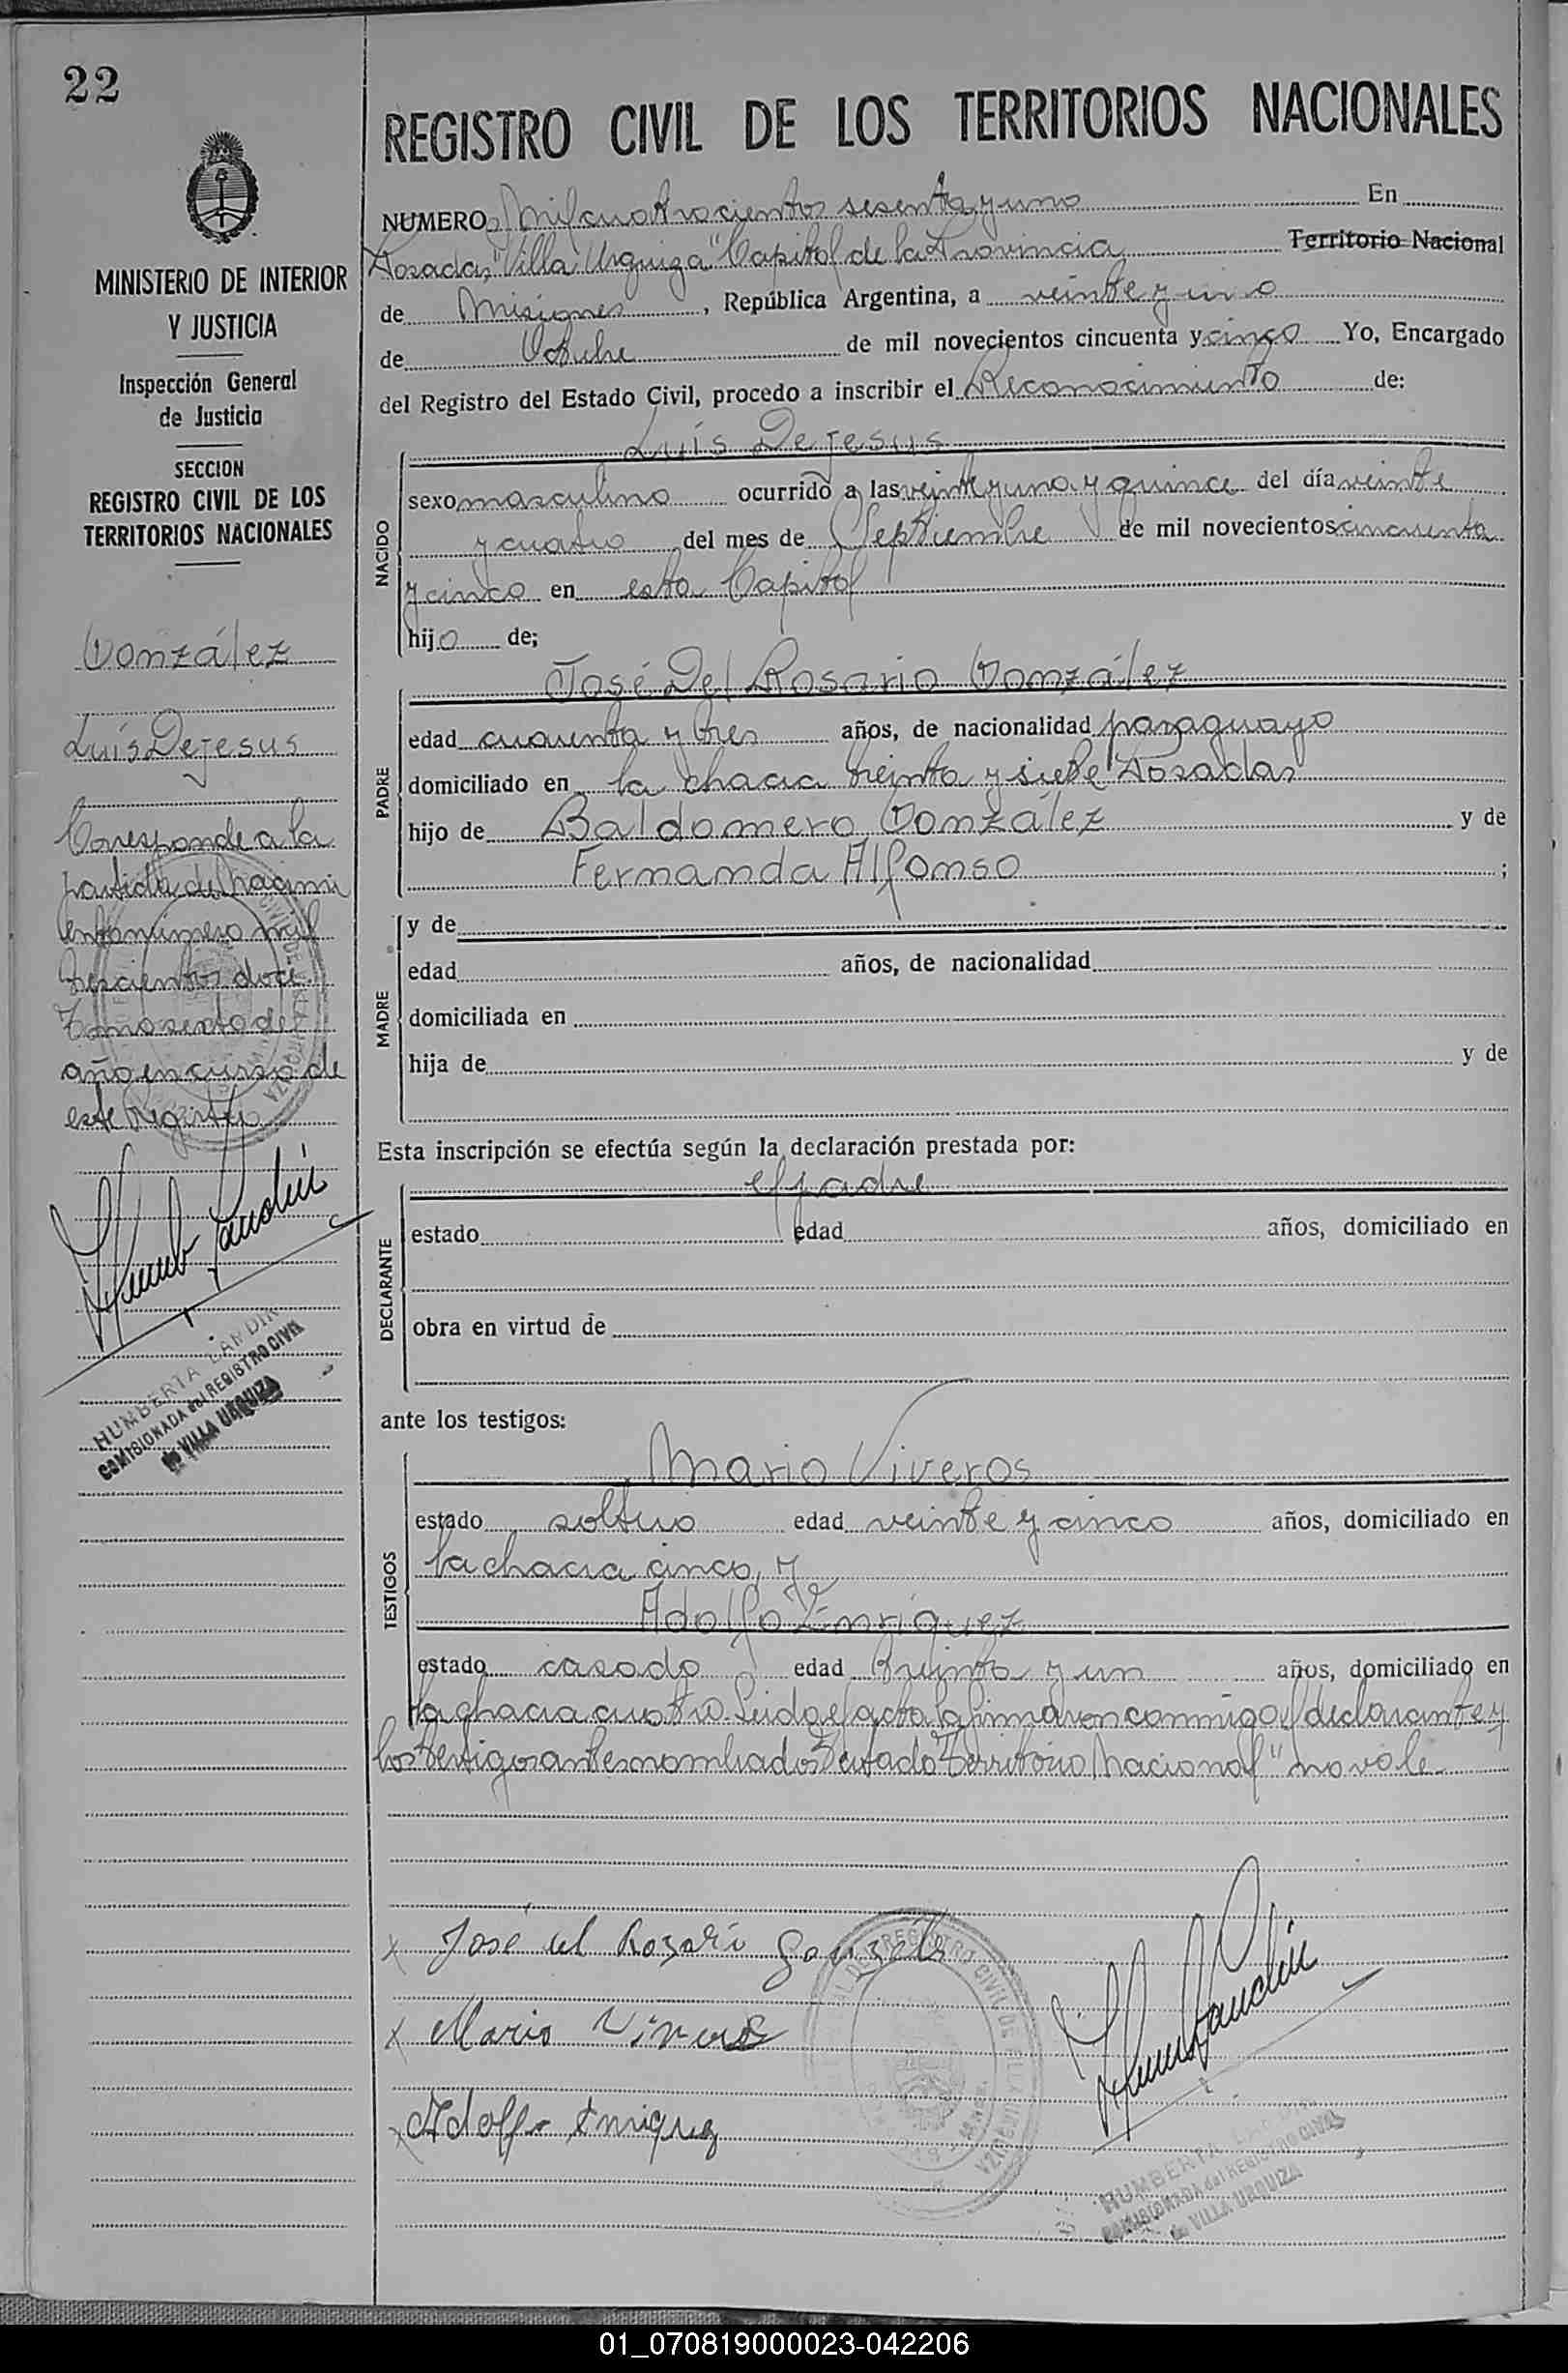 22
MINISTERIO DE INTERIOR
Y JUSTICIA
Inspección General
de Justicia
SECCION
REGISTRO CIVIL DE LOS
TERRITORIOS NACIONALES
González
Luis De jesus
Corresponde a la
partida de nacimi
ento número mil
trescientos doce
Tomo sexto del
año en curso de
este Registro
HUMBERTA LANDIN
COMISIONADA del REGISTRO CIVIL
de VILLA URQUIZA
REGISTRO CIVIL DE LOS TERRITORIOS NACIONALES
NUMERO Mil cuatrocientos sesenta y uno En
Posadas, "Villa Urquiza" Capital de la Provincia Territorio Nacional
de Misiones, República Argentina, a veinte y uno
de Octubre de mil novecientos cincuenta y cinco Yo, Encargado
del Registro del Estado Civil, procedo a inscribir el Reconocimiento de:
Luis De jesus
NACIDO
sexo masculino ocurrido a las veinte y una y quince del día veinte
y cuatro del mes de Septiembre de mil novecientos cincuenta
y cinco en esta Capital
hijo de;
José Del Rosario González
PADRE
edad cuarenta y tres años, de nacionalidad paraguayo
domiciliado en la chacra treinta y siete Posadas
hijo de Baldomero González y de
Fernanda Alfonso ;
MADRE
y de
edad años, de nacionalidad
domiciliada en
hija de y de
Esta inscripción se efectúa según la declaración prestada por:
el padre
DECLARANTE
estado edad años, domiciliado en
obra en virtud de
ante los testigos:
Mario Viveros
TESTIGOS
estado soltero edad veinte y cinco años, domiciliado en
la chacra cinco, y
Adolfo Enriquez
estado casado edad treinta y un años, domiciliado en
la chacra cuatro. Leida el acta la firmaron conmigo el declarante y
los testigos antes nombrados Testado "Territorio Nacional" no vale
José del Rosari Gonzels
Mario Viveros
Adolfo Enriquez
REGISTRO CIVIL DE VILLA URQUIZA
HUMBERTA LANDIN
COMISIONADA del REGISTRO CIVIL
de VILLA URQUIZA
01_070819000023-042206